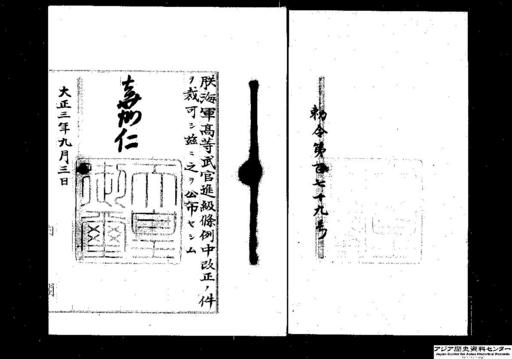 勅令第百七十九号
朕海軍高等武官進級條例中改正ノ件
ヲ裁可シ茲ニ之ヲ公布セシム
嘉仁
大正三年九月三日
アジア歴史資料センター
Japan Center for Asian Historical Records